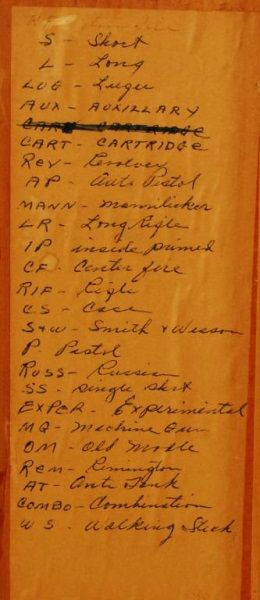 S - Short
L - Long
LUG - Luger
AUX - AUXILLARY
CART - CARTRIDGE
CART - CARTRIDGE
REV - Revolver
AP - Auto Pistol
MANN - Mannlicker
LR - Long Rifle
IP inside primed
CF - Center fire
RIF - Rifle
CS - Case
S+W - Smith + Wesson
P. Pistol
RUSS - Russian
SS - single shot
EXPER - Experimental
MG - Machine Gun
OM - Old Modle
REM - Remington
AT - Anti Tank
COMBO - Combination
WS - Walking Stick